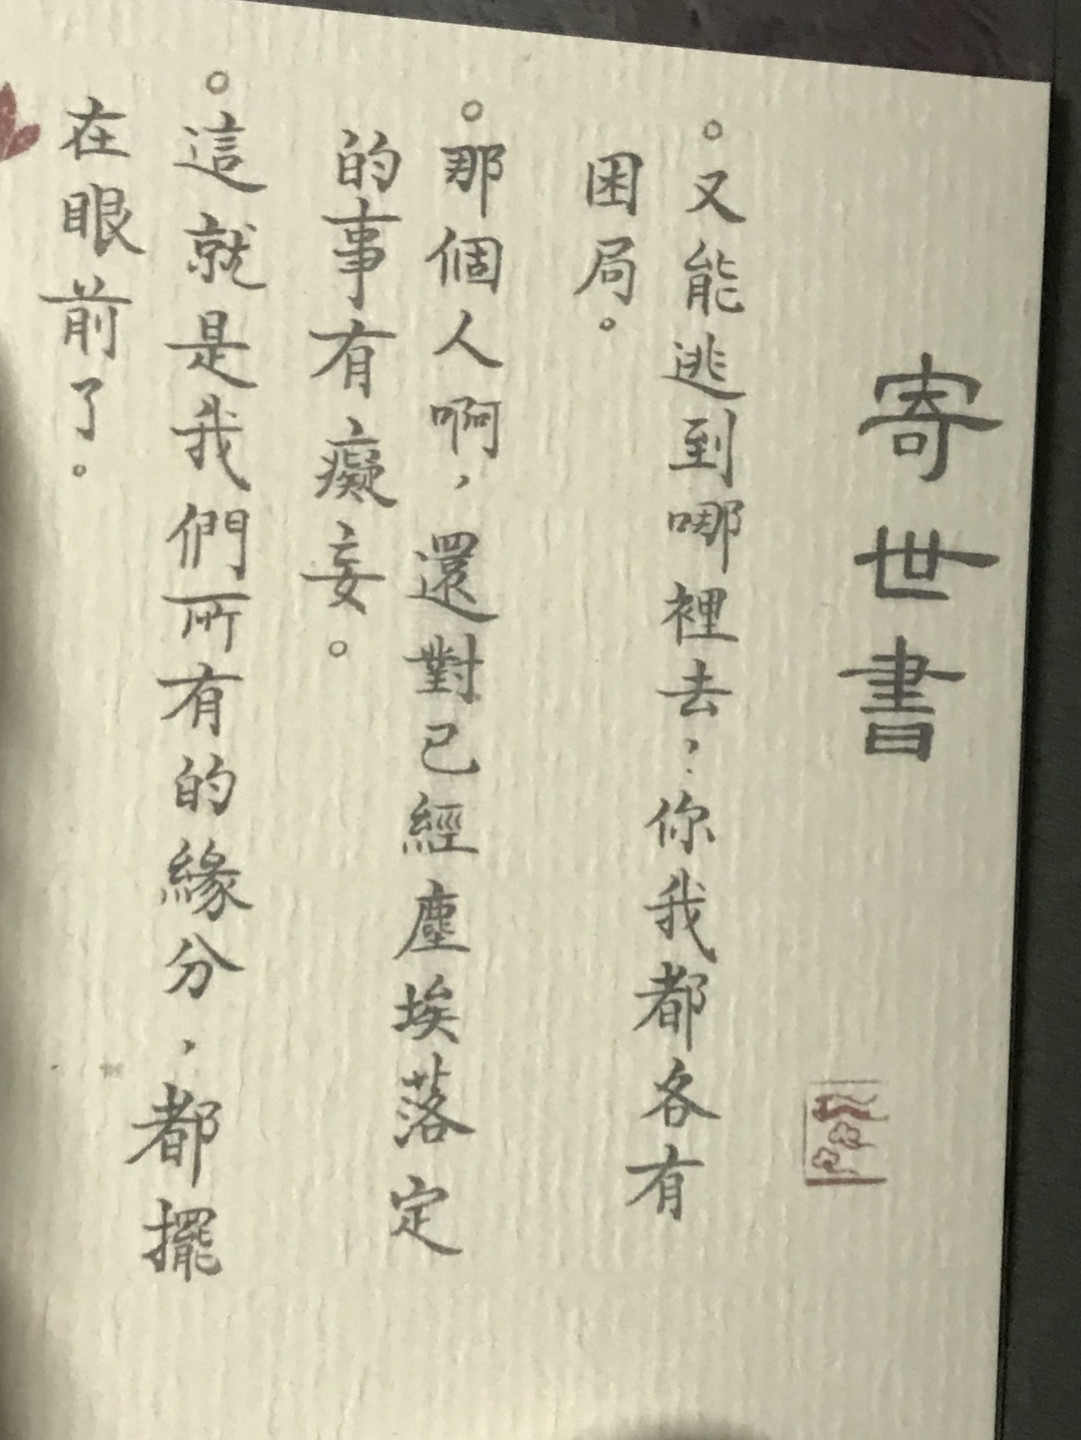 寄世書
。又能逃到哪裡去，你我都各有
困局。
。那個人啊，還對已經塵埃落定
的事有癡妄。
。這就是我們所有的緣分，都擺
在眼前了。